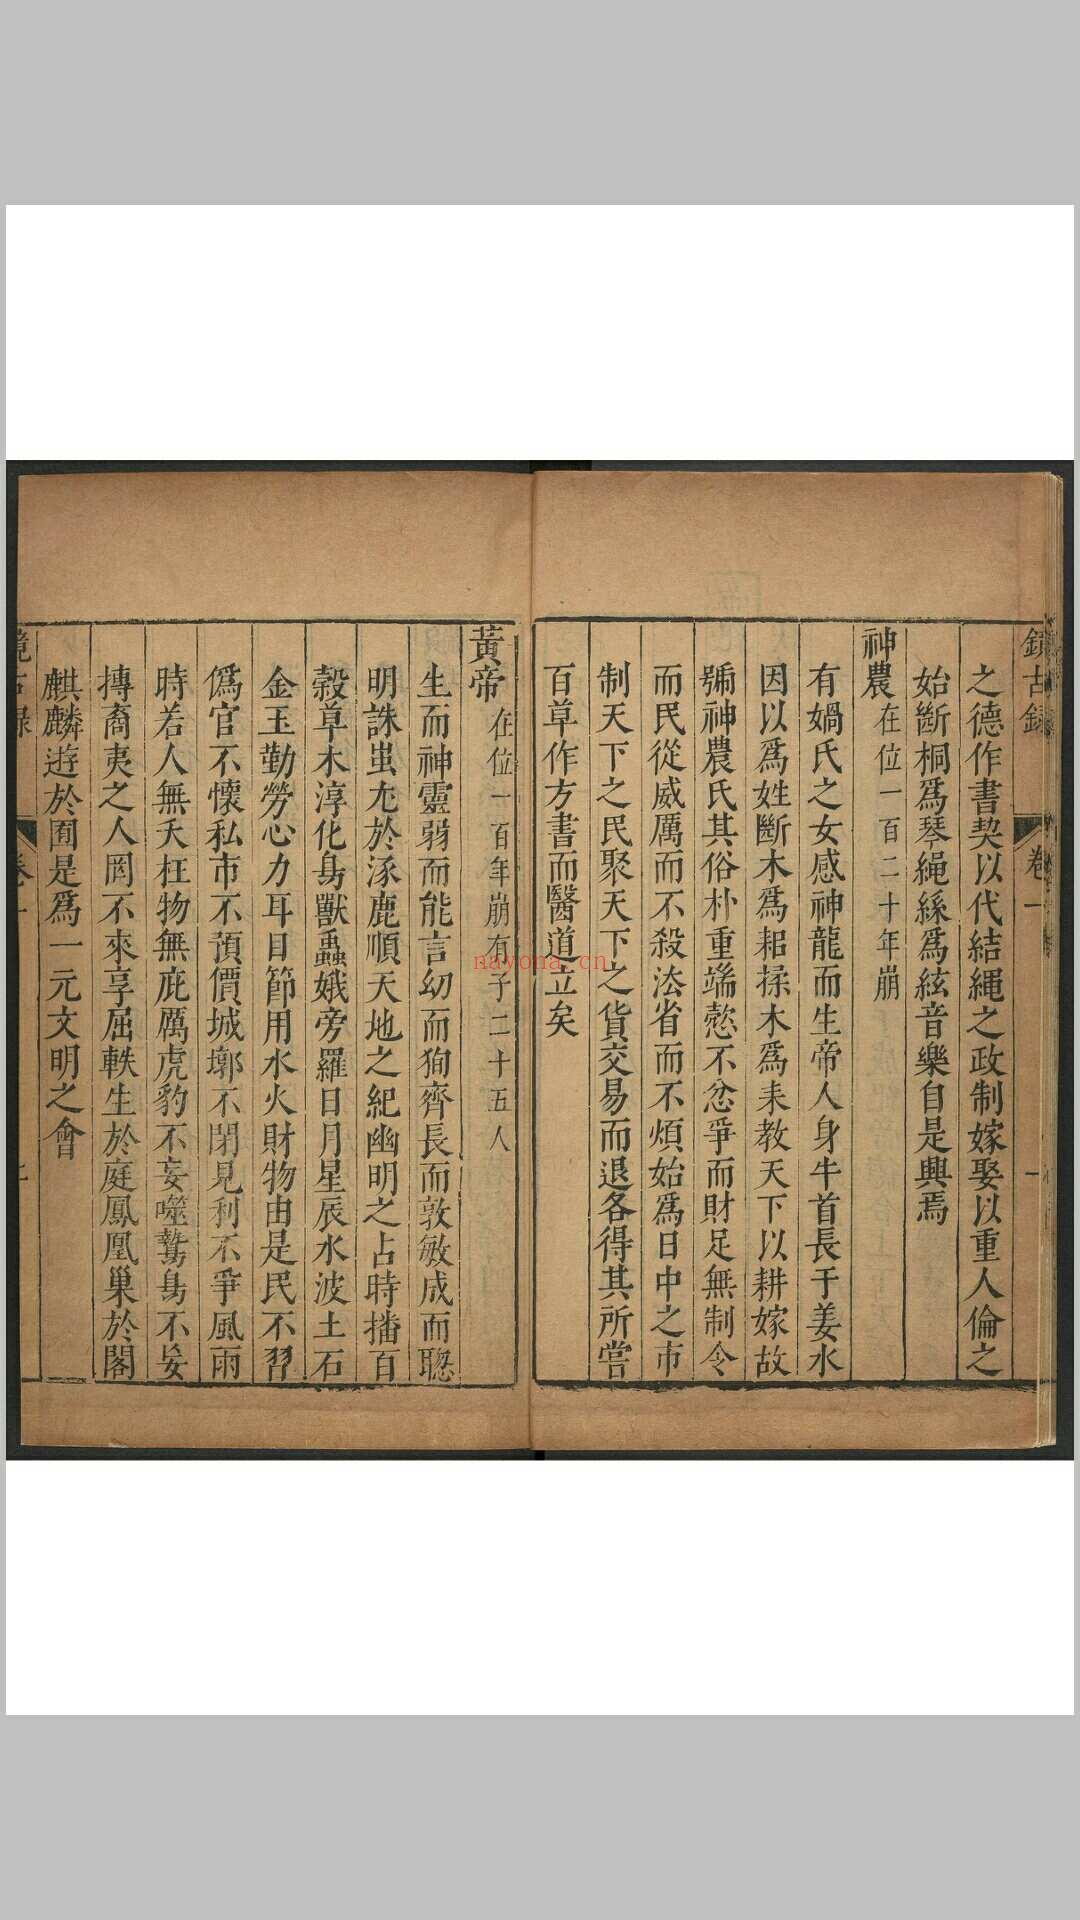 鏡古錄 卷一 一
之德作書契以代結繩之政制嫁娶以重人倫之
始斷桐爲琴繩絲爲絃音樂自是興焉
神農在位一百二十年崩
有媧氏之女感神龍而生帝人身牛首長于姜水
因以爲姓斷木爲耜揉木爲耒教天下以耕嫁故
號神農氏其俗朴重端愨不忿爭而財足無制令
而民從威厲而不殺法省而不煩始爲日中之市
制天下之民聚天下之貨交易而退各得其所嘗
百草作方書而醫道立矣
黃帝在位一百年崩有子二十五人
生而神靈弱而能言幼而狥齊長而敦敏成而聦
明誅蚩尤於涿鹿順天地之紀幽明之占時播百
穀草木淳化鳥獸蟲蛾旁羅日月星辰水波土石
金玉勤勞心力耳目節用水火財物由是民不習
僞官不懷私市不預價城墎不閉見利不爭風雨
時若人無夭枉物無疵厲虎豹不妄噬鷙鳥不妄
摶裔夷之人罔不來享屈軼生於庭鳳凰巢於閣
麒麟遊於囿是爲一元文明之會
鏡古錄 卷一
nayona.cn